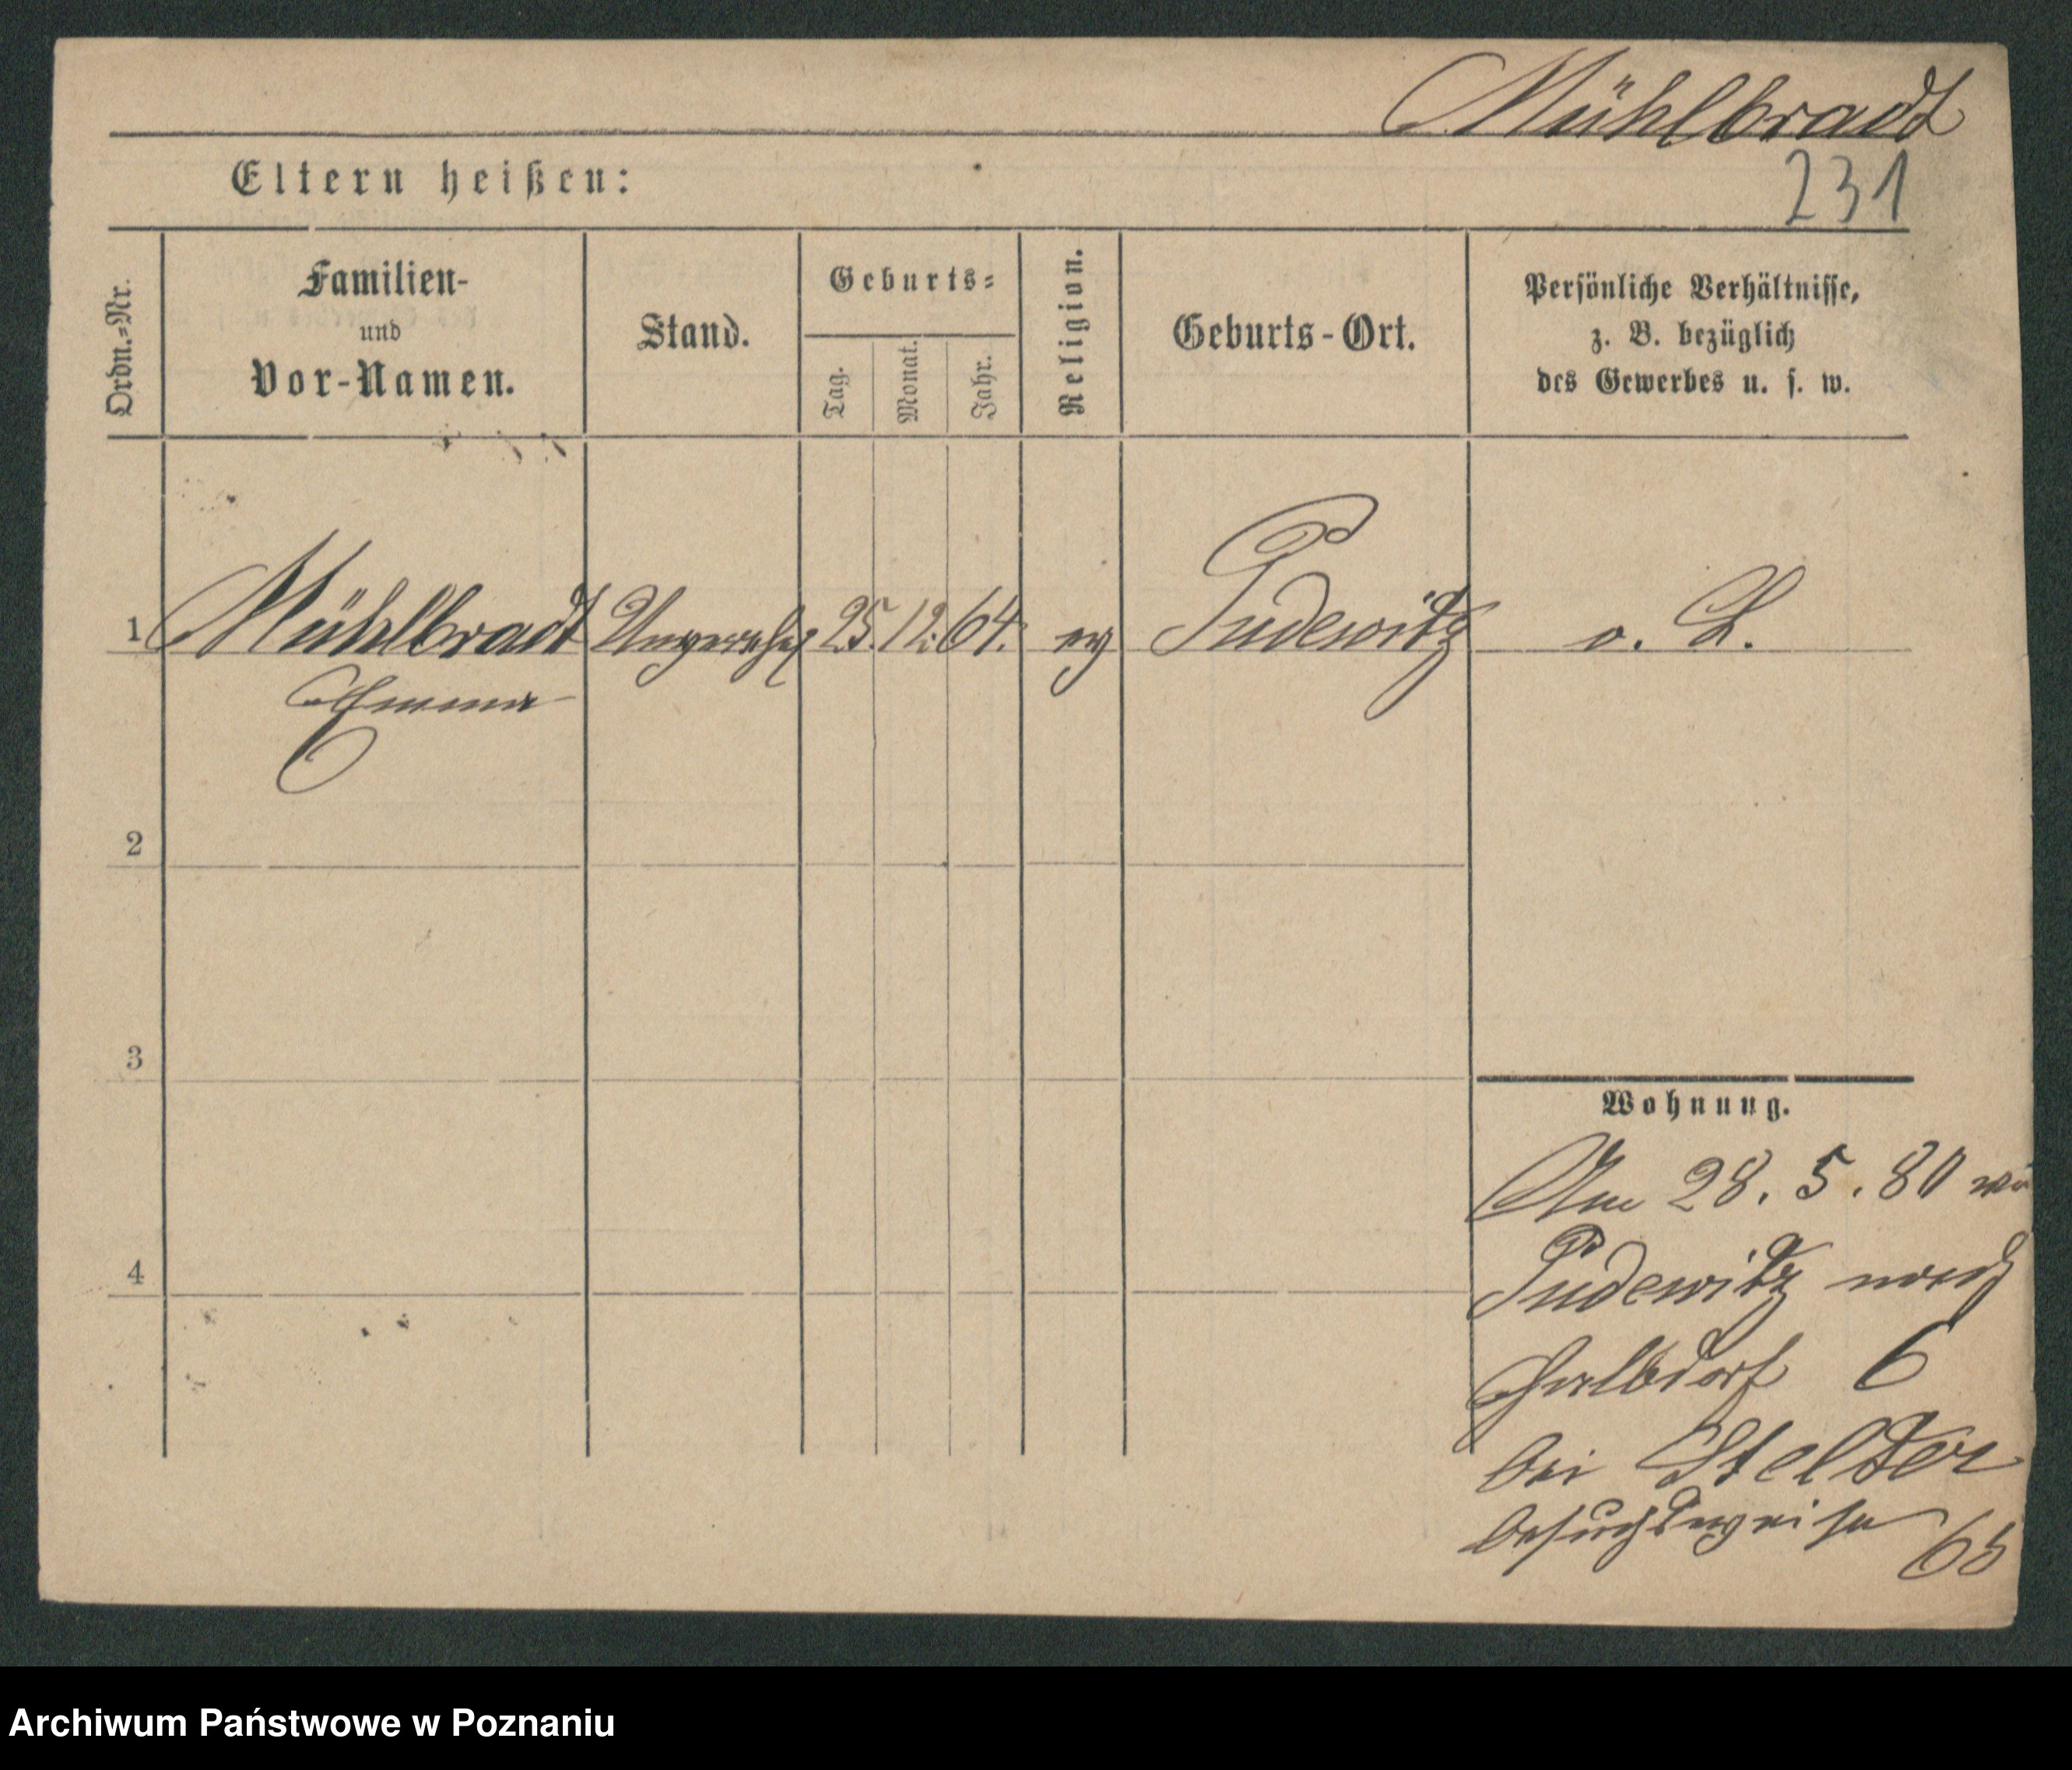 Mühlbradt
231
Eltern heißen:
Ordn.=Nr.
Familien-
und
Vor-Namen.
Stand.
Geburts=
Tag.
Monat.
Jahr.
Religion.
Geburts-Ort.
Persönliche Verhältnisse,
z. B. bezüglich
des Gewerbes u. s. w.
1 Mühlbradt Unverehel 25. 12. 64. ev Pudewitz o. L.
Emma
2
3
4
Wohnung.
Am 28. 5. 80 von
Pudewitz nach
Halbdorf 6
bei Stelter
besuchsweise 65
Archiwum Państwowe w Poznaniu